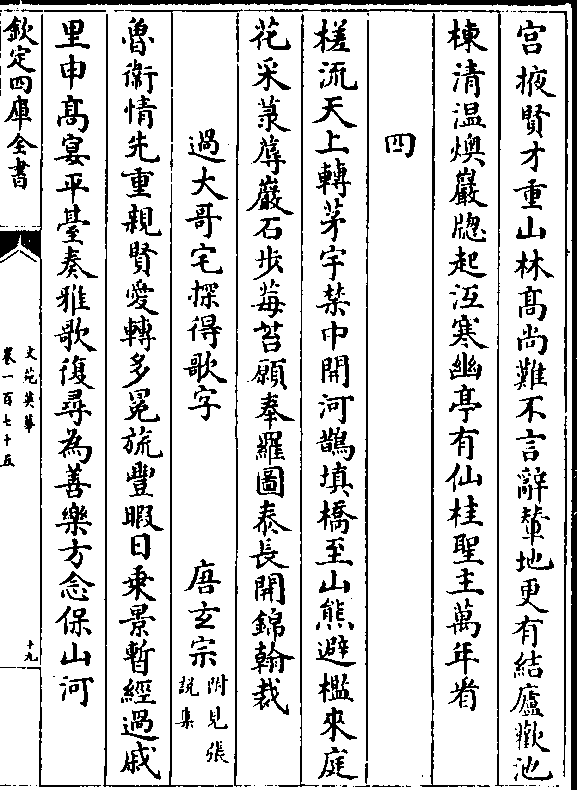 宫掖賢才重山林髙尚難不言辭輦地更有結廬歡池
棟清温燠巖牎起沍寒幽亭有仙桂聖主萬年看
四
槎流天上轉茅宇禁中開河鵲填橋至山熊避檻來庭
花采菉蓐巖石步莓苔願奉羅圖泰長開錦翰裁
過大哥宅探得歌字 唐玄宗 附見張説集
魯衛情先重親賢愛轉多冕旒豐暇日乗景暫經過戚
里申髙宴平臺奏雅歌復尋為善樂方念保山河
欽定四庫全書
文苑英華
卷一百七十五
十九